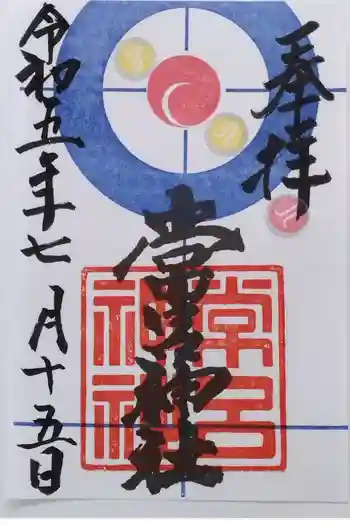 奉拝
常呂神社
常呂神社
令和五年七月十五日